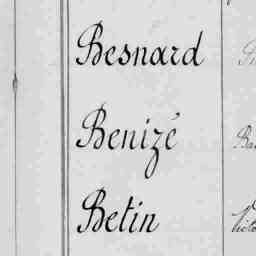 Besnard
Benizé
Betin